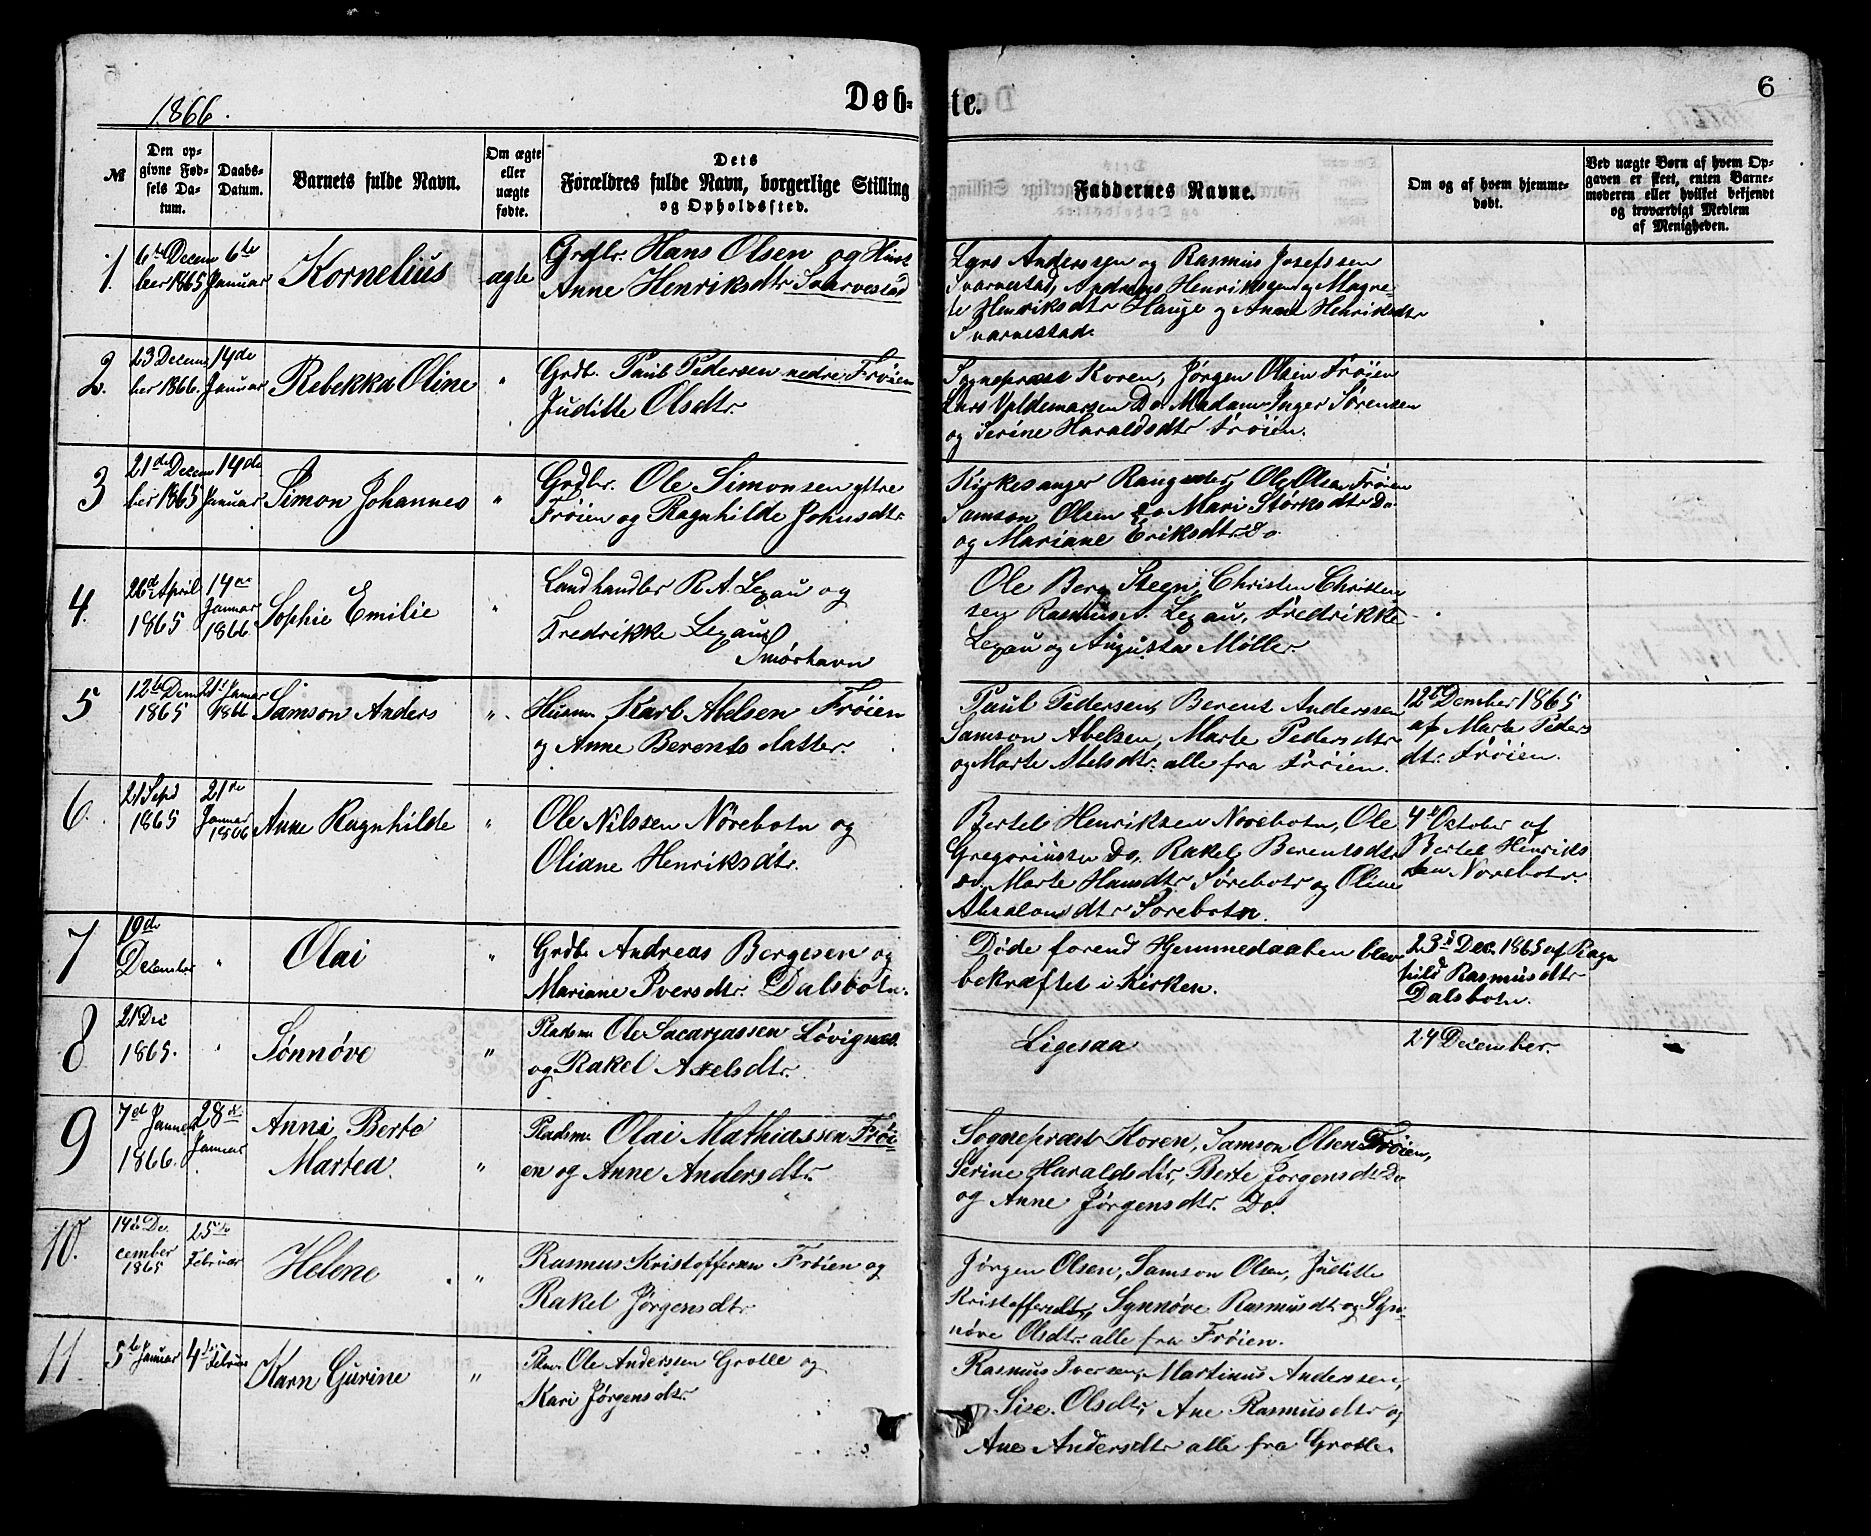 6
1866.
Døb-
te.
№
Den op-
givne Fød-
sels Da-
tum.
Daabs-
Datum.
Barnets fulde Navn.
Om ægte
eller
uægte
fødte.
Dets
Forældres fulde Navn, borgerlige Stilling
og Opholdssted.
Faddernes Navne.
Om og af hvem hjemme-
døbt.
Ved uægte Børn af hvem Op-
gaven er skeet, enten Barne-
moderen eller hvilket bekjendt
og troværdigt Medlem
af Menigheden.
1.
6te Decem
ber 1865
6te
Januar
Kornelius
ægte
Grdbr. Hans Olsen og Hust
Anne Henriksdtr
Lars Anderssen og Rasmus Josefssen
Andreas Henriksen og Magre-
te Henriksdtr Hauge og Anne Henriksdtr
2.
23 Decem
ber 1866.
14de
Januar
Rebekka Oline
"
Grdb. Paul Pedersen nedre Frøien
Juditte Olsdtr.
Sognepræst Koren, Jørgen Olsen Frøien
Lars Valdemarsen Do Madam Inger Sørensen
og Serine Haraldsdtr Frøien.
3
21de Decem
ber 1865
14de
Januar
Simon Johannes
"
Grdbr. Ole Simonsen ytre
Frøien og Ragnhilde Johnsdtr
Kirkesanger Ole Olsen Frøien
Samson Olsen Do Mari Størksdtr Do
og Mariane Eriksdtr. Do.
4.
26d April
1865
14de
Januar
1866.
Sophie Emilie
"
Landhandler R. A. Lexau og
Fredrikke Lexau
Smørhavn
Ole Berg Steen, Christen Christen
sen Rasmus A. Lexau, Fredrikke
Lexau og Augusta Møller.
5
12te Decem
1865
21de Januar
1866
Samson Anders
".
Husm. Karl Abelsen Frøien
og Anne Berents datter.
Paul Pedersen, Berent Anderssen
Samson Abelsen, Marte Pedersdtr
og Marte Abelsdtr. alle fra Frøien.
12te Dcember 1865
af Marte Peders
dtr. Frøien.
6.
21 Sept
1865
21de
Januar
1866
Anne Ragnhilde
"
Ole Nilssen Nörebotn og
Oliane Henriksdtr.
Bertel Henriksen Norebotn, Ole
Gregoriussen Do, Rakel Berentsdtr
Do. Marte Hansdtr. Sørebotn og Oline
Absalonsdtr Sørebotn.
4de October af
Bertel Henriks
sen Norebotn.
7
19de
December
"
Olai
"
Grdb. Andreas Bergesen og
Mariane Iversdtr. Dalsbotn.
Døde forend Hjemmedaaben blev
bekræftet i Kirken.
23de Dec. 1865 af Ragn
hild Rasmusdtr
Dalsbotn.
8
21 Dec
1865.
"
Sønnøve
"
Pladsm. Ole Sacariassen Løvignæs.
og Rakel Axelsdtr.
Ligesaa
24 December.
9
7d Januar
1866.
28de
Januar
Anne Berte
Martea.
"
Pladsm. Olai Mathiassen Frøi
en og Anne Andersdtr.
Sognepræst Koren, Samson Olsen Frøien,
Serine Haraldsdtr, Berte Jørgensdtr Do
og Anne Jørgensdtr. Do.
10.
14de De
cember
1865
25de
Februar
Helene
"
Rasmus Kristoffersen Frøien og
Rakel Jørgensdtr.
Jørgen Olsen, Samson Olsen, Juditte
Kristoffersdtr, Synnøve Rasmusdtr og Syn-
nøve Olsdtr. alle fra Frøien.
11
5te Januar
4de Februar
Karn Gurine
"
Plm. Ole Anderssen Grotle og
Kari Jørgensdtr.
Rasmus Iversen, Martinus Anderssen,
Sise. Olsdtr, Ane Rasmusdtr og
Ane Andersdtr alle fra Grotle.